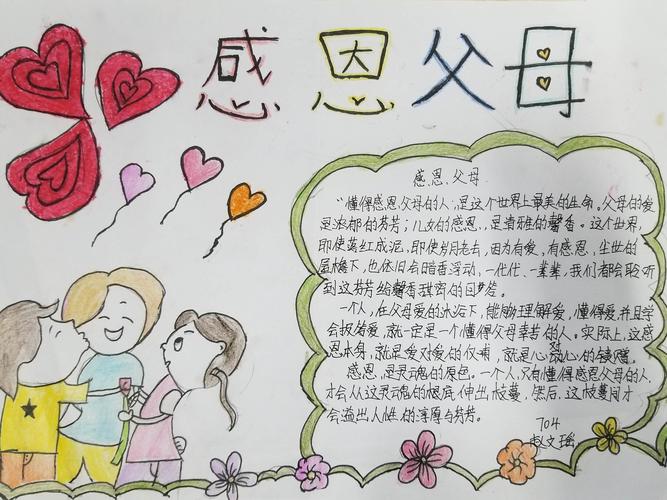 感恩父母
感恩父母
"懂得感恩父母的人,是这个世界上最美的生命。父母的爱
是浓郁的芬芳;儿女的感恩,是清雅的馨香。这个世界,
即使落红成泥,即使岁月老去,因为有爱,有感恩,尘世的
屋檐下,也依旧会暗香浮动,一代代、一辈辈,我们都会聆听
到这芬芳给馨香甜齐的回答。
一个人,在父母爱的沐浴下,能够理解爱,懂得爱并且学
会报答爱,就一定是一个懂得父母幸苦的人。实际上,这感
恩本身,就是爱对爱的仪式,就是心对心的
感恩,是灵魂的原色。一个人,只有懂得感恩父母的人,
才会从这灵魂的根底,伸出枝蔓,然后,这枝蔓间才
会溢出人性的淳厚与芬芳。
704
赵文瑶